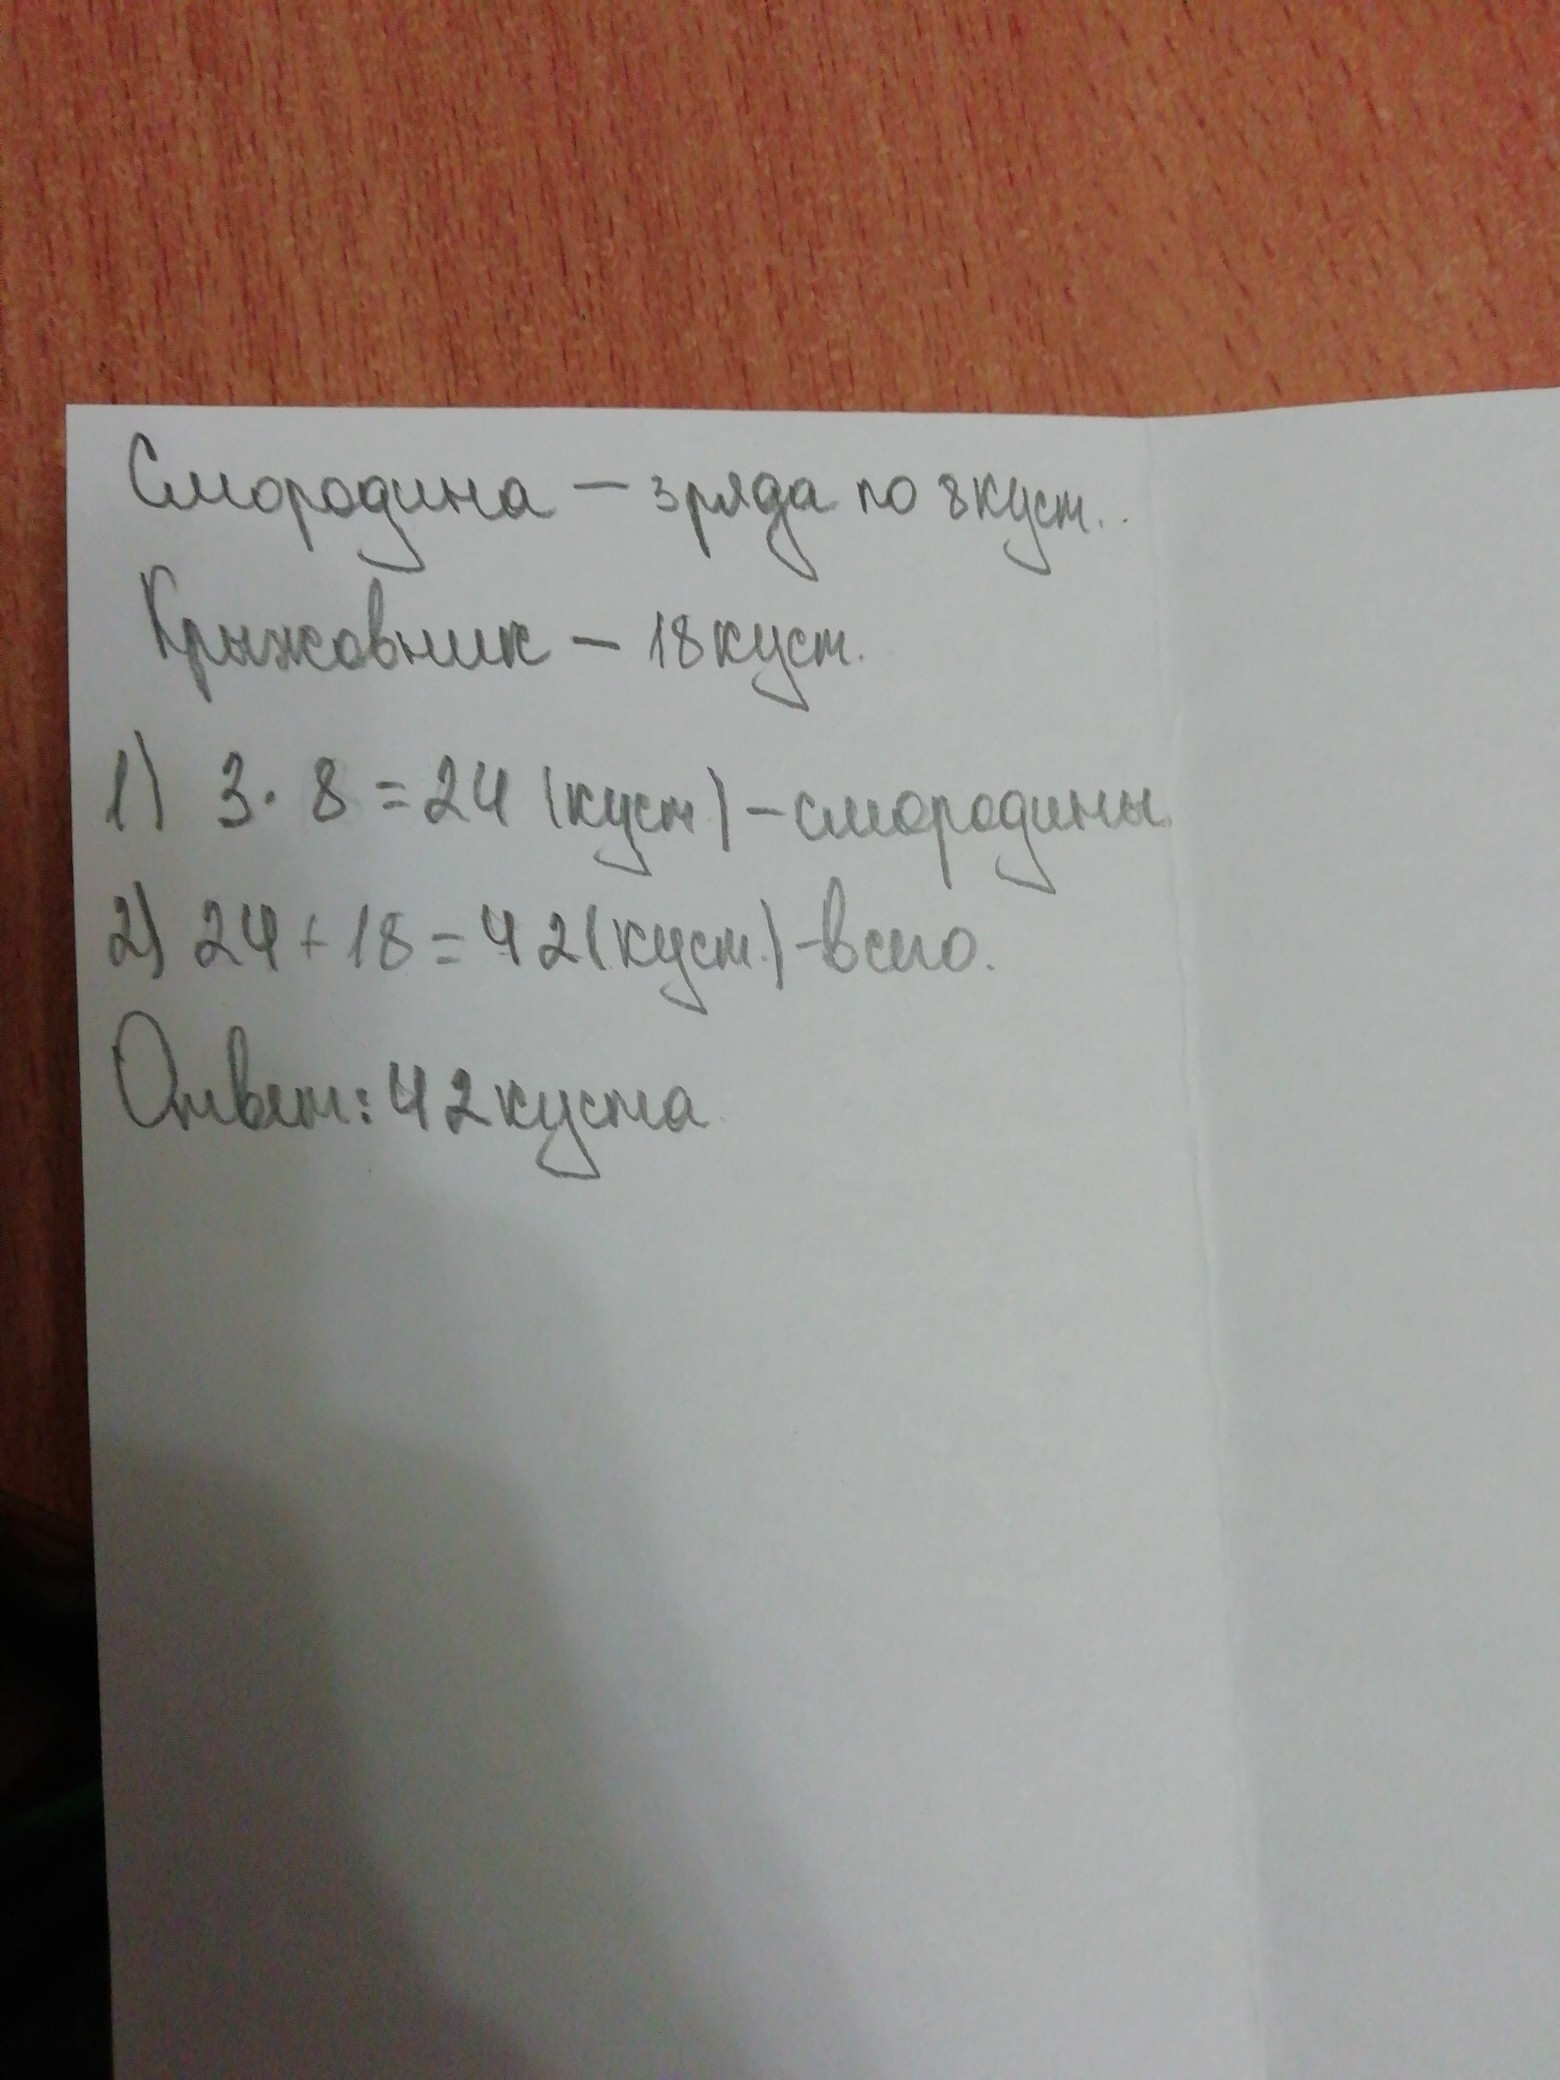 Смородина – 3 ряда по 8 куст..
Крыжовник – 18 куст.
1) 3 · 8 = 24 (куст) – смородины
2) 24 + 18 = 42 (куст.) – всего.
Ответ: 42 куста